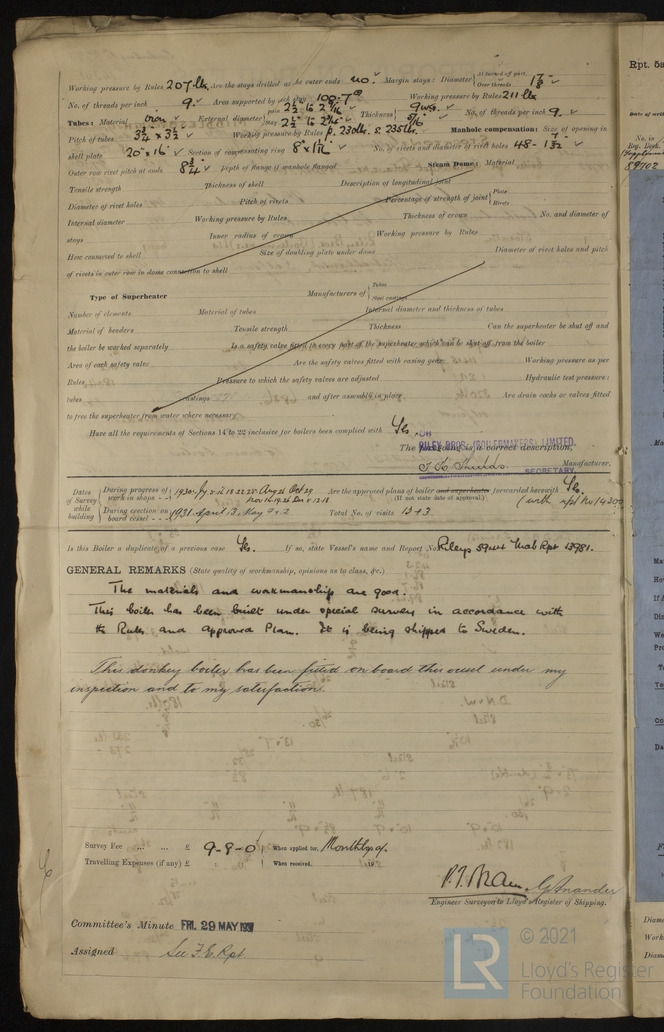 Working pressure by Rules 207 lbs. Are the stays drilled at the outer ends no. Margin stays: Diameter { At turned off part, Over threads 1 7/8"
No. of threads per inch 9. Area supported by each stay Working pressure by Rules 211 lbs
Tubes: Material iron External diameter { plain 2 1/2" stay 2 1/2" Thickness { 9 wg. 5/16 No. of threads per inch 9.
Pitch of tubes 3 3/4 x 3 1/2 Working pressure by Rules p. 230 lbs. s. 235 lbs. Manhole compensation: Size of opening in
shell plate 20" x 16" Section of compensating ring No. of rivets and diameter of rivet holes 48 - 1 7/32
Outer row rivet pitch at ends 8 3/4 Depth of flange if manhole flanged Steam Dome: Material
Tensile strength Thickness of shell Description of longitudinal joint
Diameter of rivet holes Pitch of rivets Percentage of strength of joint { Plate Rivets
Internal diameter Working pressure by Rules Thickness of crown No. and diameter of
stays Inner radius of crown Working pressure by Rules
How connected to shell Size of doubling plate under dome Diameter of rivet holes and pitch
of rivets in outer row in dome connection to shell
Type of Superheater Manufacturers of { Tubes Steel castings
Number of elements Material of tubes Internal diameter and thickness of tubes
Material of headers Tensile strength Thickness Can the superheater be shut off and
the boiler be worked separately Is a safety valve fitted to every part of the superheater which can be shut off from the boiler
Area of each safety valve Are the safety valves fitted with easing gear Working pressure as per
Rules Pressure to which the safety valves are adjusted Hydraulic test pressure:
tubes castings and after assembly in place Are drain cocks or valves fitted
to free the superheater from water where necessary
Have all the requirements of Sections 14 to 22 inclusive for boilers been complied with Yes.
FOR
RILEY BROS. (BOILERMAKERS) LIMITED.
The foregoing is a correct description,
SECRETARY Manufacturer.
Dates of Survey while building { During progress of work in shops - - 1930: Aug 21 Oct 29 Nov Are the approved plans of boiler and superheater forwarded herewith Yes.
(If not state date of approval.)
During erection on board vessel - - - 1931 April 13, May 9 Total No. of visits 13 + 3
Is this Boiler a duplicate of a previous case Yes. If so, state Vessel's name and Report No. Rileys Rpt 13981.
GENERAL REMARKS (State quality of workmanship, opinions as to class, &c.)
The materials and workmanship are good.
This boiler has been built under special survey in accordance with
the Rules and approved Plan. It is being shipped to Sweden.
This donkey boiler has been fitted on board this vessel under my
inspection and to my satisfaction.
Survey Fee ... ... £ 9-9-0 When applied for, Monthly a/c.
Travelling Expenses (if any) £ : : When received, 19
Engineer Surveyor to Lloyd's Register of Shipping.
Committee's Minute FRI. 29 MAY 1931
Assigned See F.E. Rpt.
Rpt. 5a
Date of writ
No. in
Reg. Book.
89702
LR © 2021
Lloyd's Register
Foundation